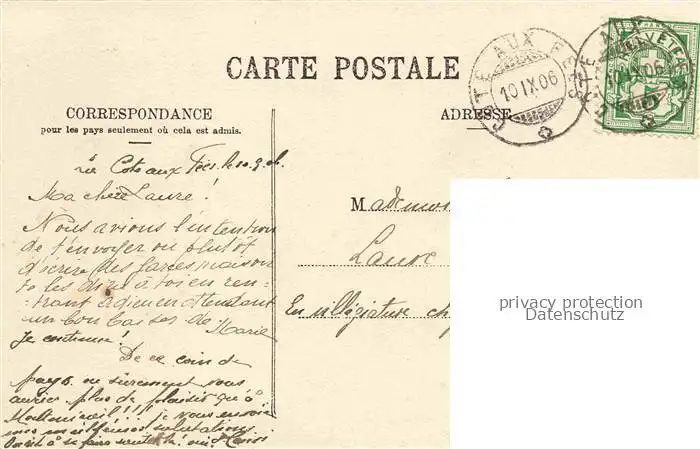 CARTE POSTALE
CORRESPONDANCE
pour les pays seulement où cela est admis.
ADRESSE
CÔTE AUX FÉES
10 IX 06
HELVETIA
La Cote aux Fées, le 10.9.06.
Ma chère Laure!
Nous avions l'intention
de t'envoyer ou plutôt
d'écrire des farces, mais on
te les dira à toi en ren-
trant adieu en attendant
un bon baiser de Marie
Je continue.
De ce coin de
pays ou sûrement vous
auriez plus de plaisir qu'à
!!! je vous envoie
mes meilleures salutations
Mademois
Laure
En villégiature ch
privacy protection
Datenschutz